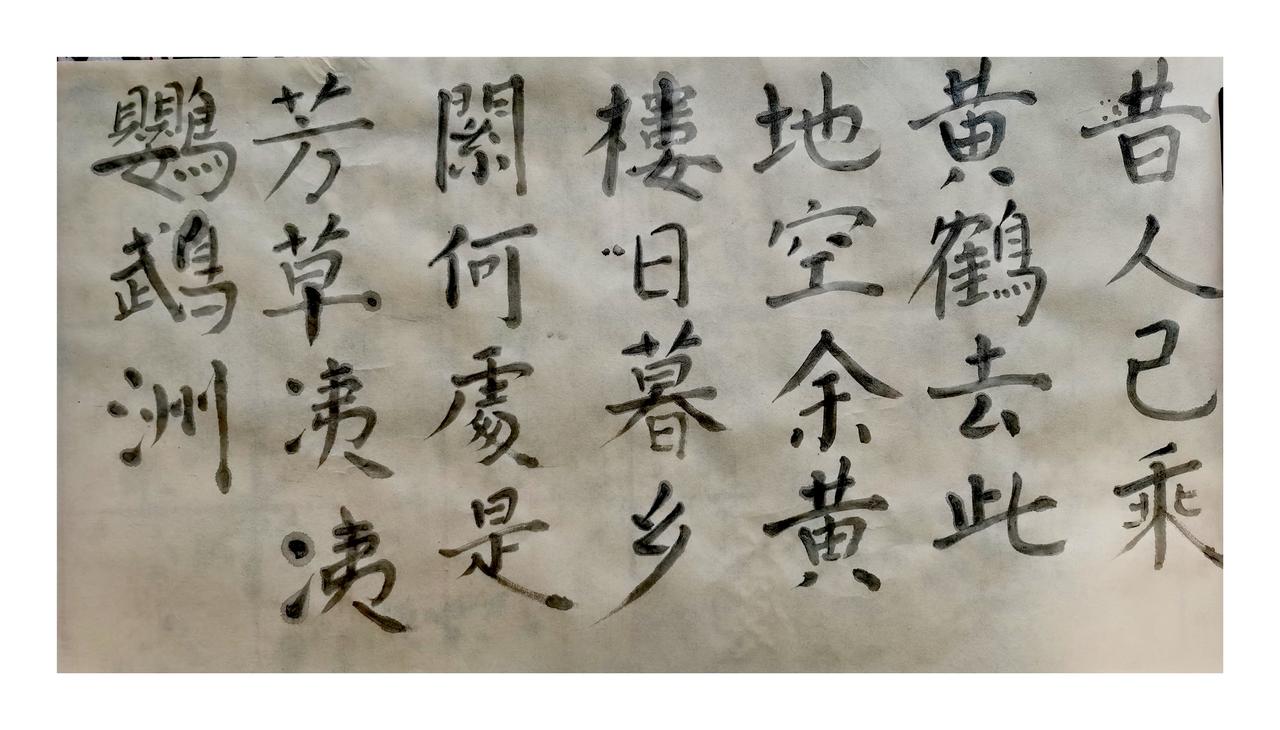 昔人已乘
黄鶴去此
地空余黄
樓日暮乡
關何處是
芳草洟洟
鸚鵡洲